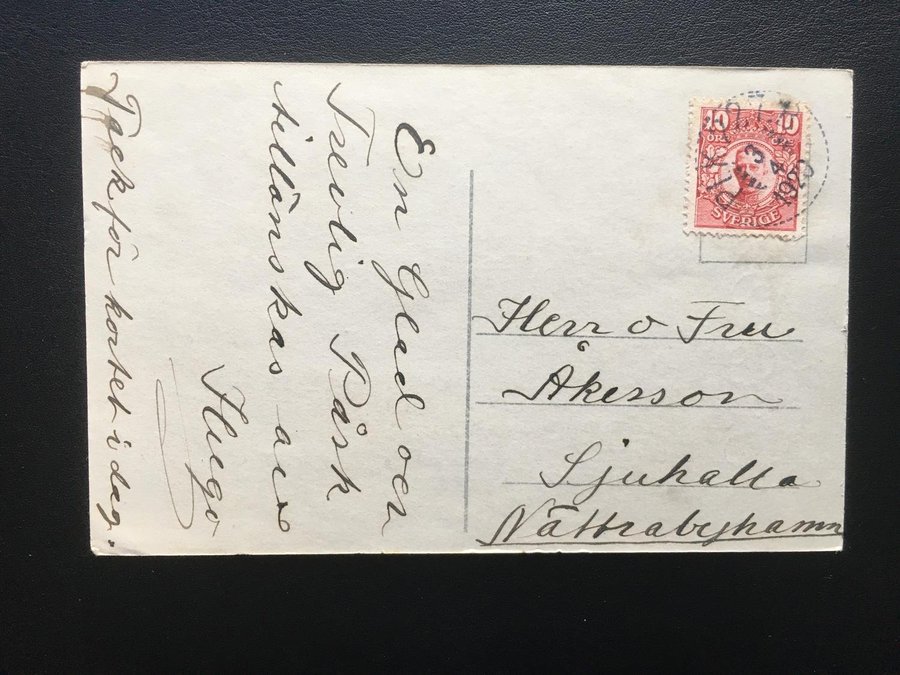 En Glad och
Trevlig Påsk
tillönskas av
Hugo
Tack för kortet i dag.
10 10
ÖRE
SVERIGE
3 4
1920
Herr o Fru
Åkerson
Sjuhalla
Nättrabyhamn